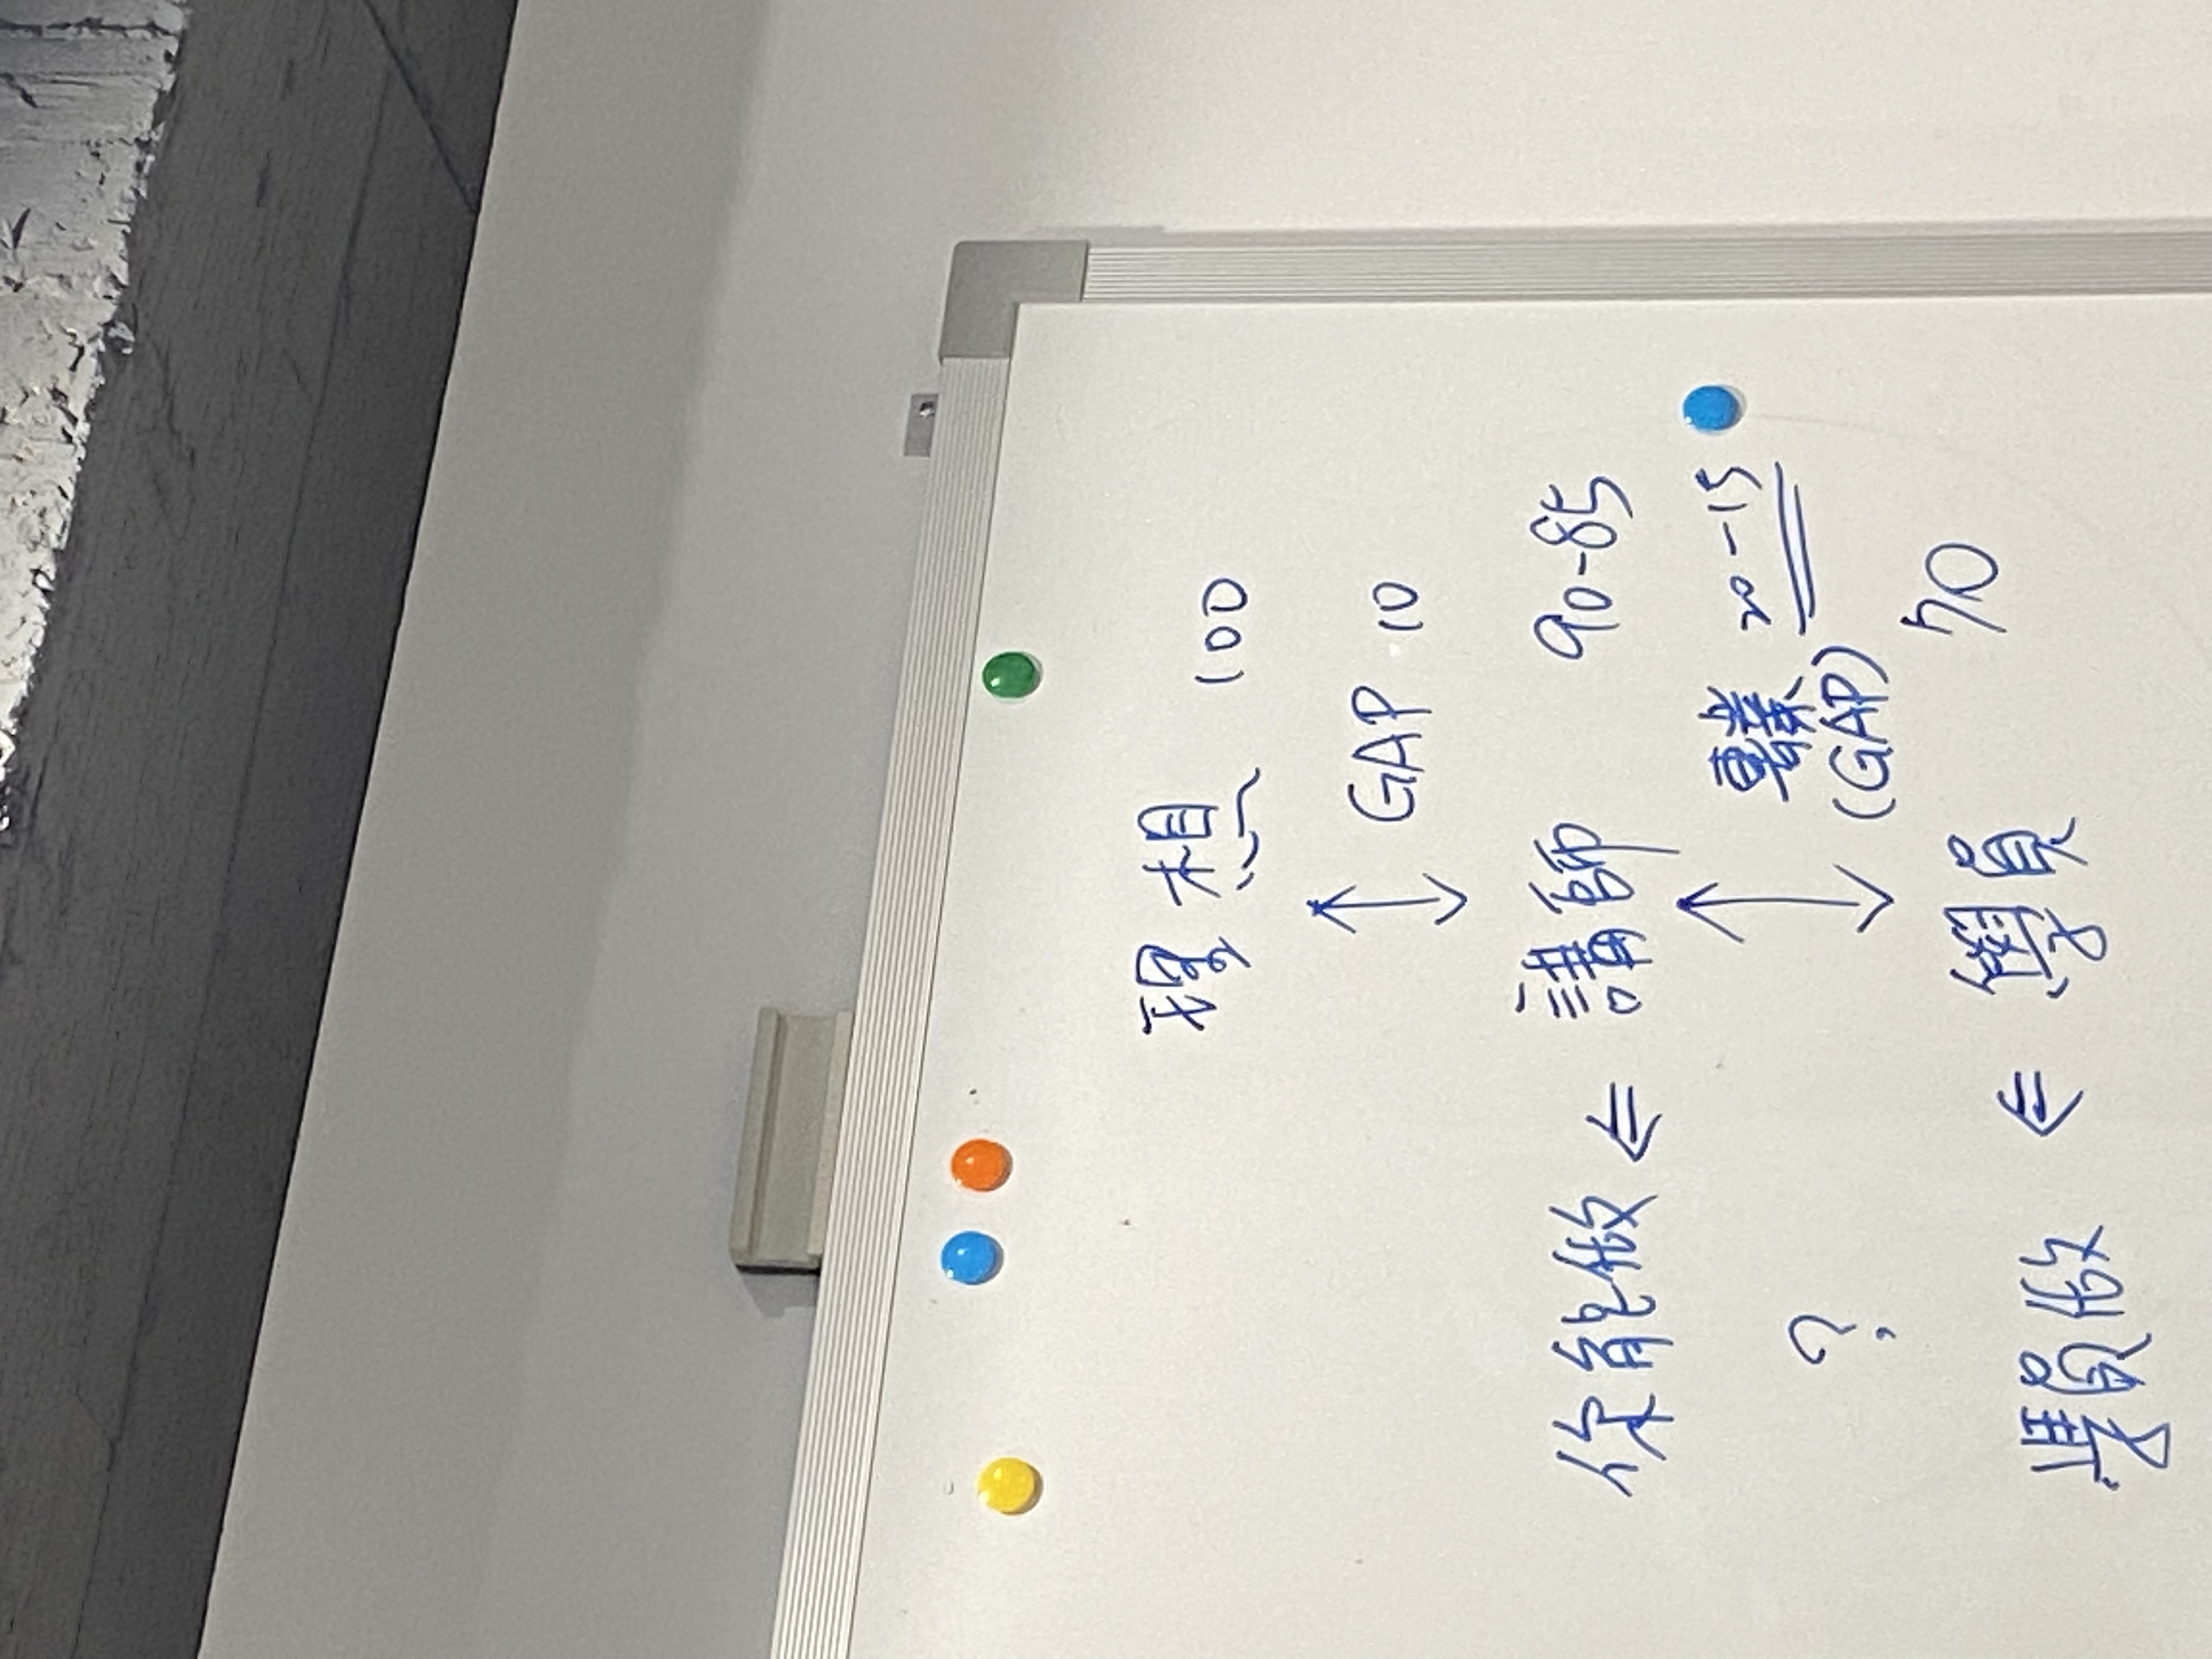 理想 100
GAP 10
你能做 ⇐ 講師 90-85
專業 20-15
(GAP)
?
70
學員做 ⇐ 學員